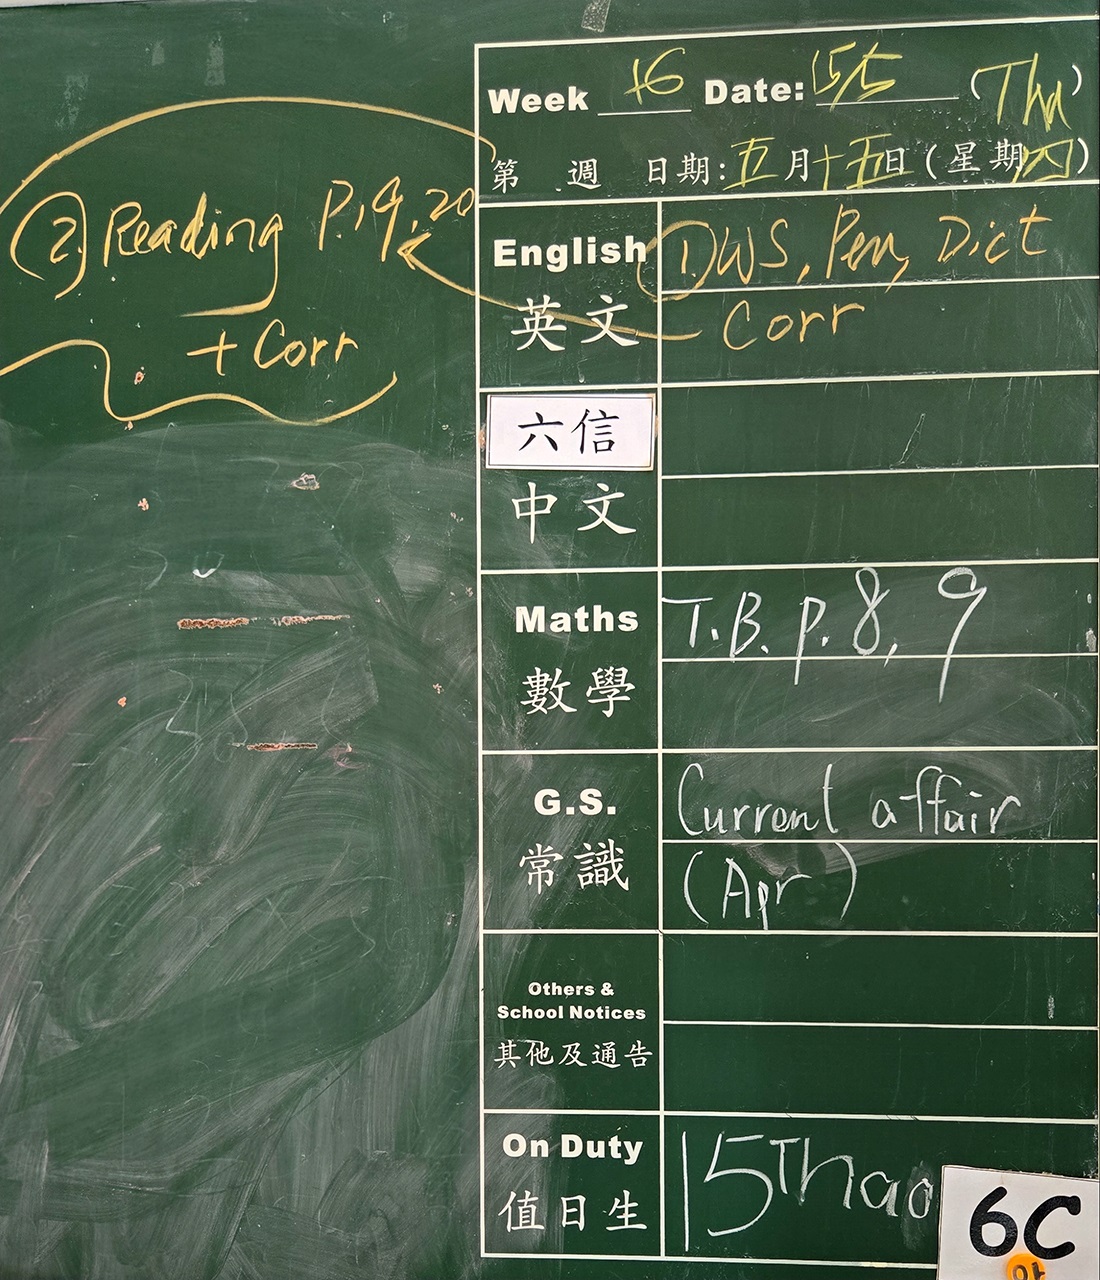 Week 16 Date: 15/5 (Thu)
第 週 日期: 五月十五日 (星期四)
② Reading P.19, 20
+ Corr
English ① WS, Pen, Dict
英文 Corr
六信
中文
Maths T.B. p. 8, 9
數學
G.S. Current affair
常識 (Apr)
Others &
School Notices
其他及通告
On Duty 15 Thao
值日生
6C